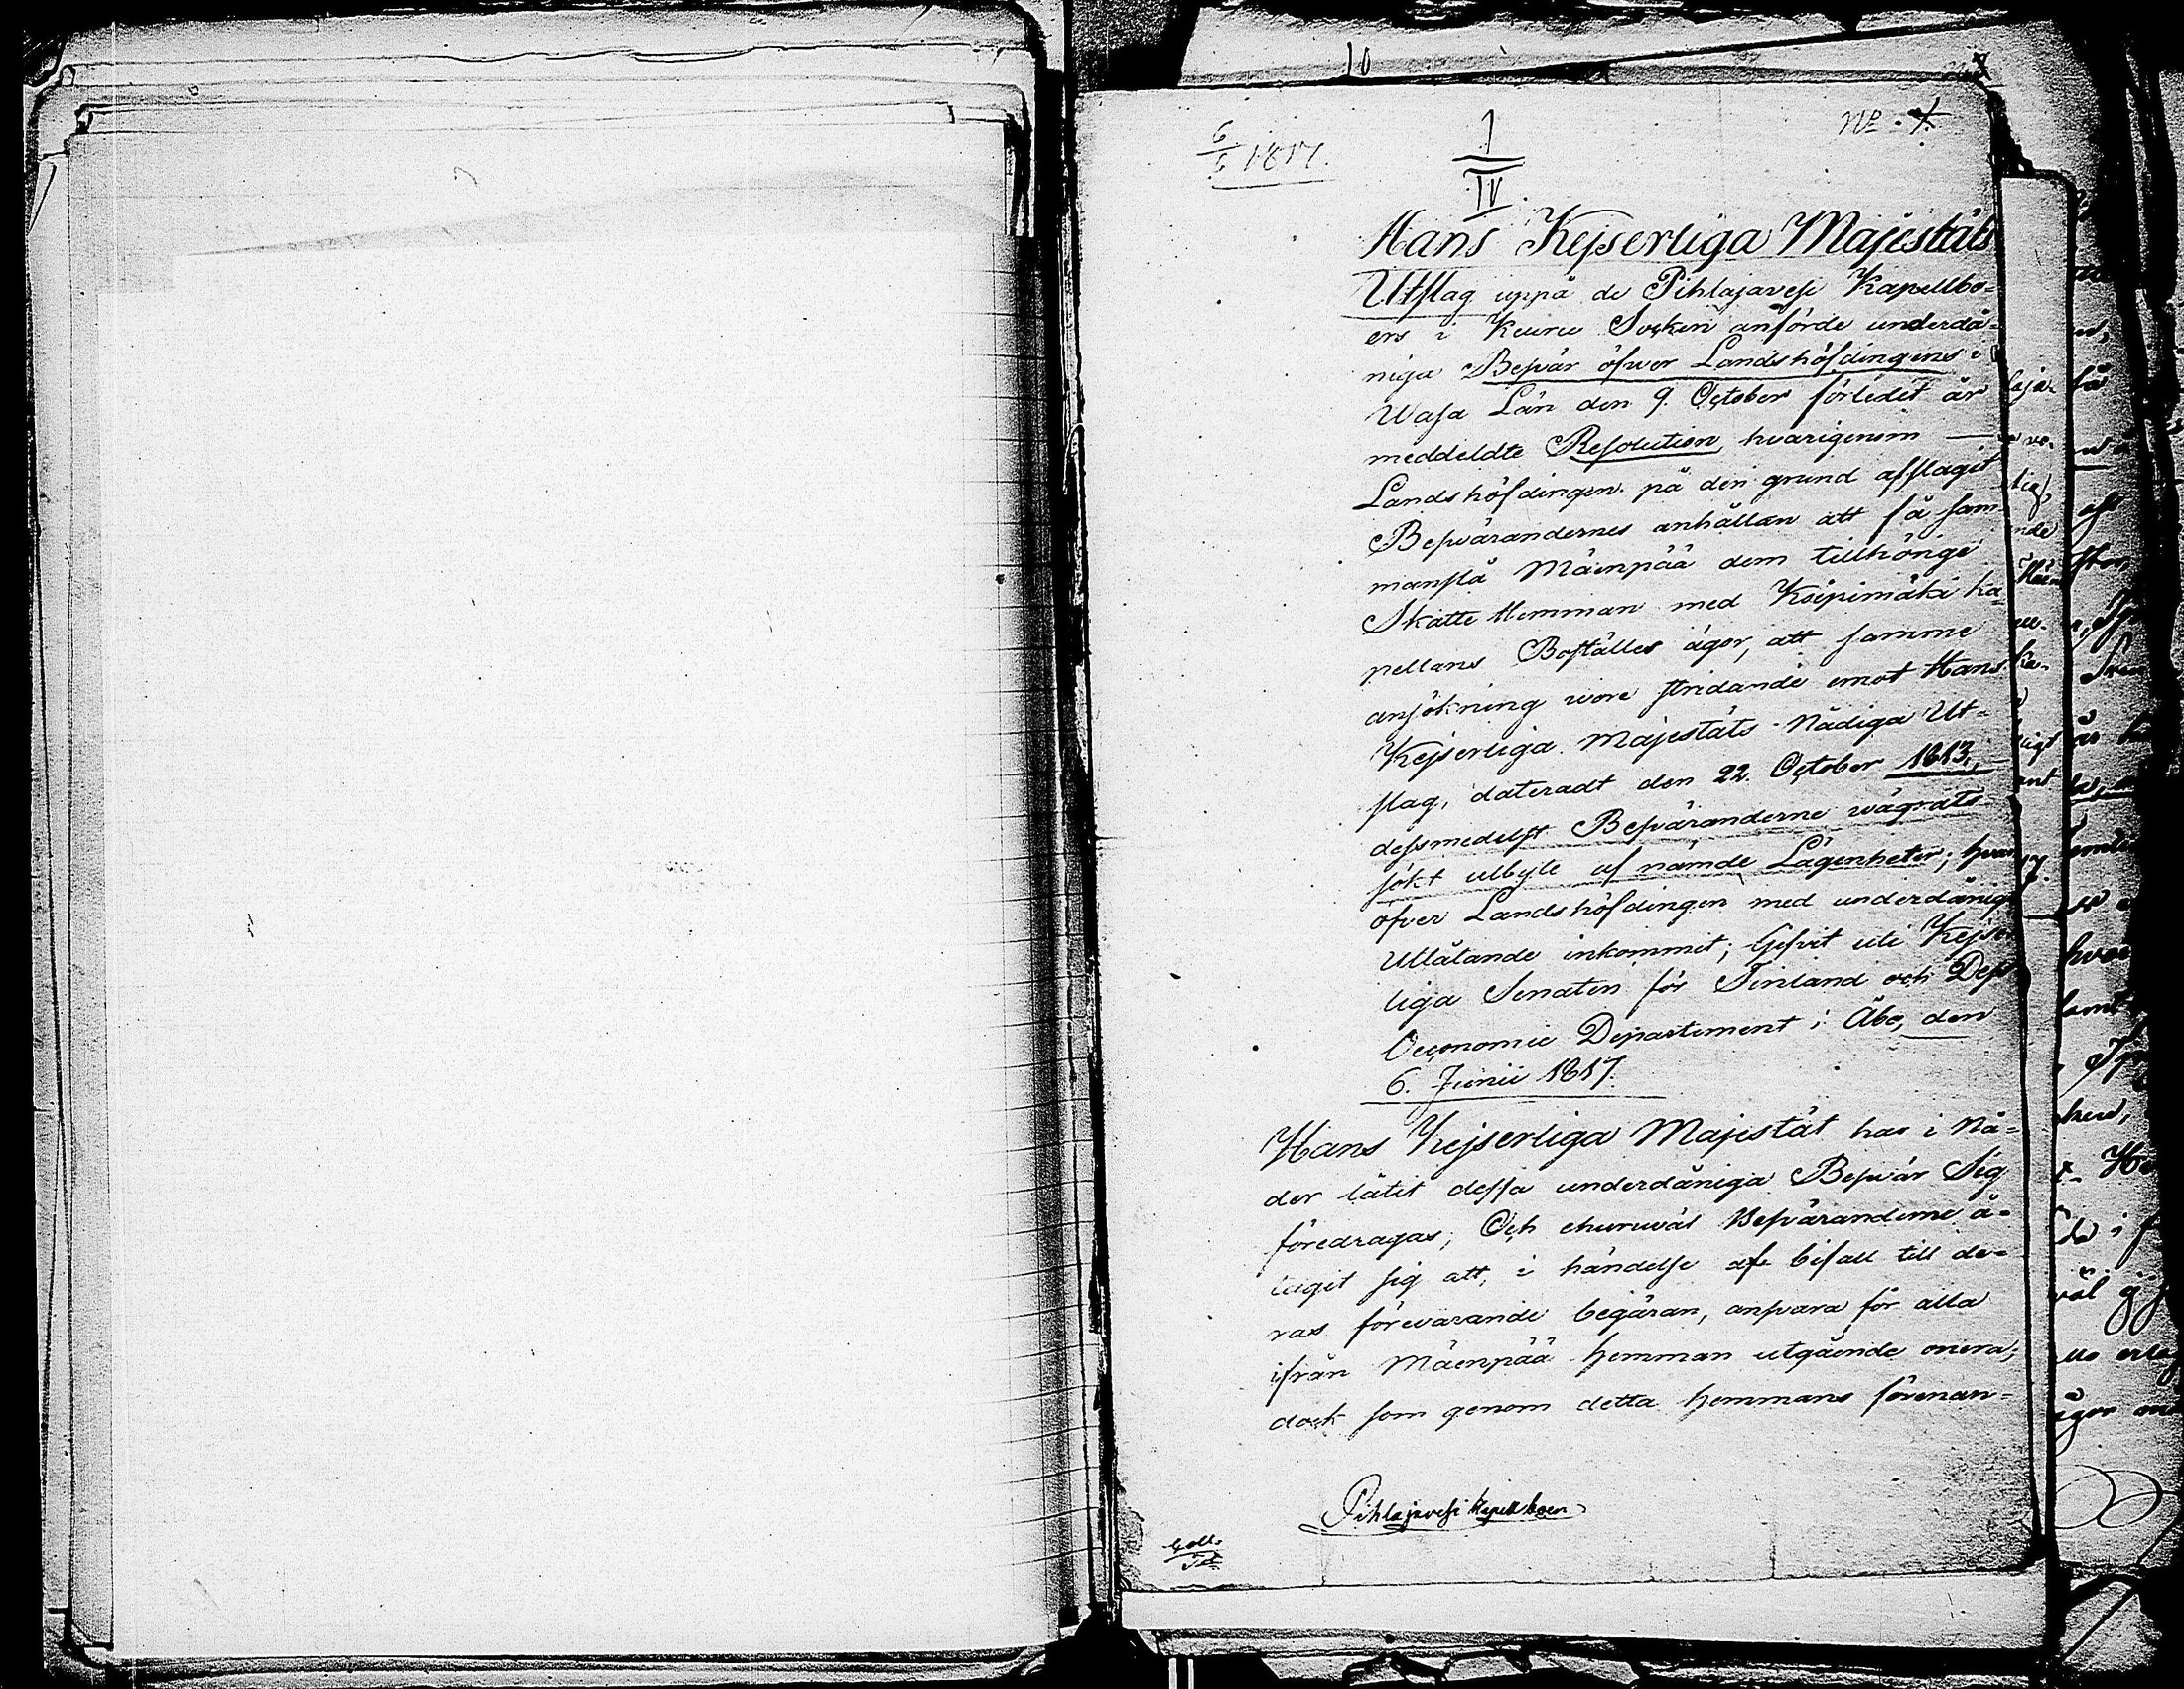 10
6/6 1817.
1/IV.
No. 7.
Hans Kejserliga Majestäts
Utslag uppå de Pihlajavesi Kapellbo=
ers i Keuru Socken anförde underdå=
niga Besvär öfwer Landshöfdingens i
Wasa Län den 9. October förledit år
meddeldte Resolution, hwarigenom —
Landshöfdingen på den grund afslagit
Besvärandernes anhållan att få sam=
manslå Mäenpää dem tillhörige
Skatte Hemman med Köipimäki ka=
pellans Boställes ägor, att samme
ansökning wore stridande emot Hans
Kejserliga Majestäts Nådiga Ut=
slag, dateradt den 22. October 1813, —
dessmedelst Besväranderne wägrats
sökt utbyte af nämde Lägenheter; hvar
öfver Landshöfdingen med underdånigt
Utlåtande inkommit; Gifvit uti Kejser
liga Senaten för Finland och Dess
Oeconomie Departement i Åbo, den
6. Junii 1817.
Hans Kejserliga Majestät har i Nå=
der låtit dessa underdåniga Besvär Sig
föredragas; Och ehuruwäl Besväranderne å=
tagit sig att, i händelse af bifall till de=
ras förewarande begäran, ansvara för alla
ifrån Mäenpää hemman utgående onera;
dock som genom detta hemmans förenan=
Pihlajavesi Kapellboer
Coll.